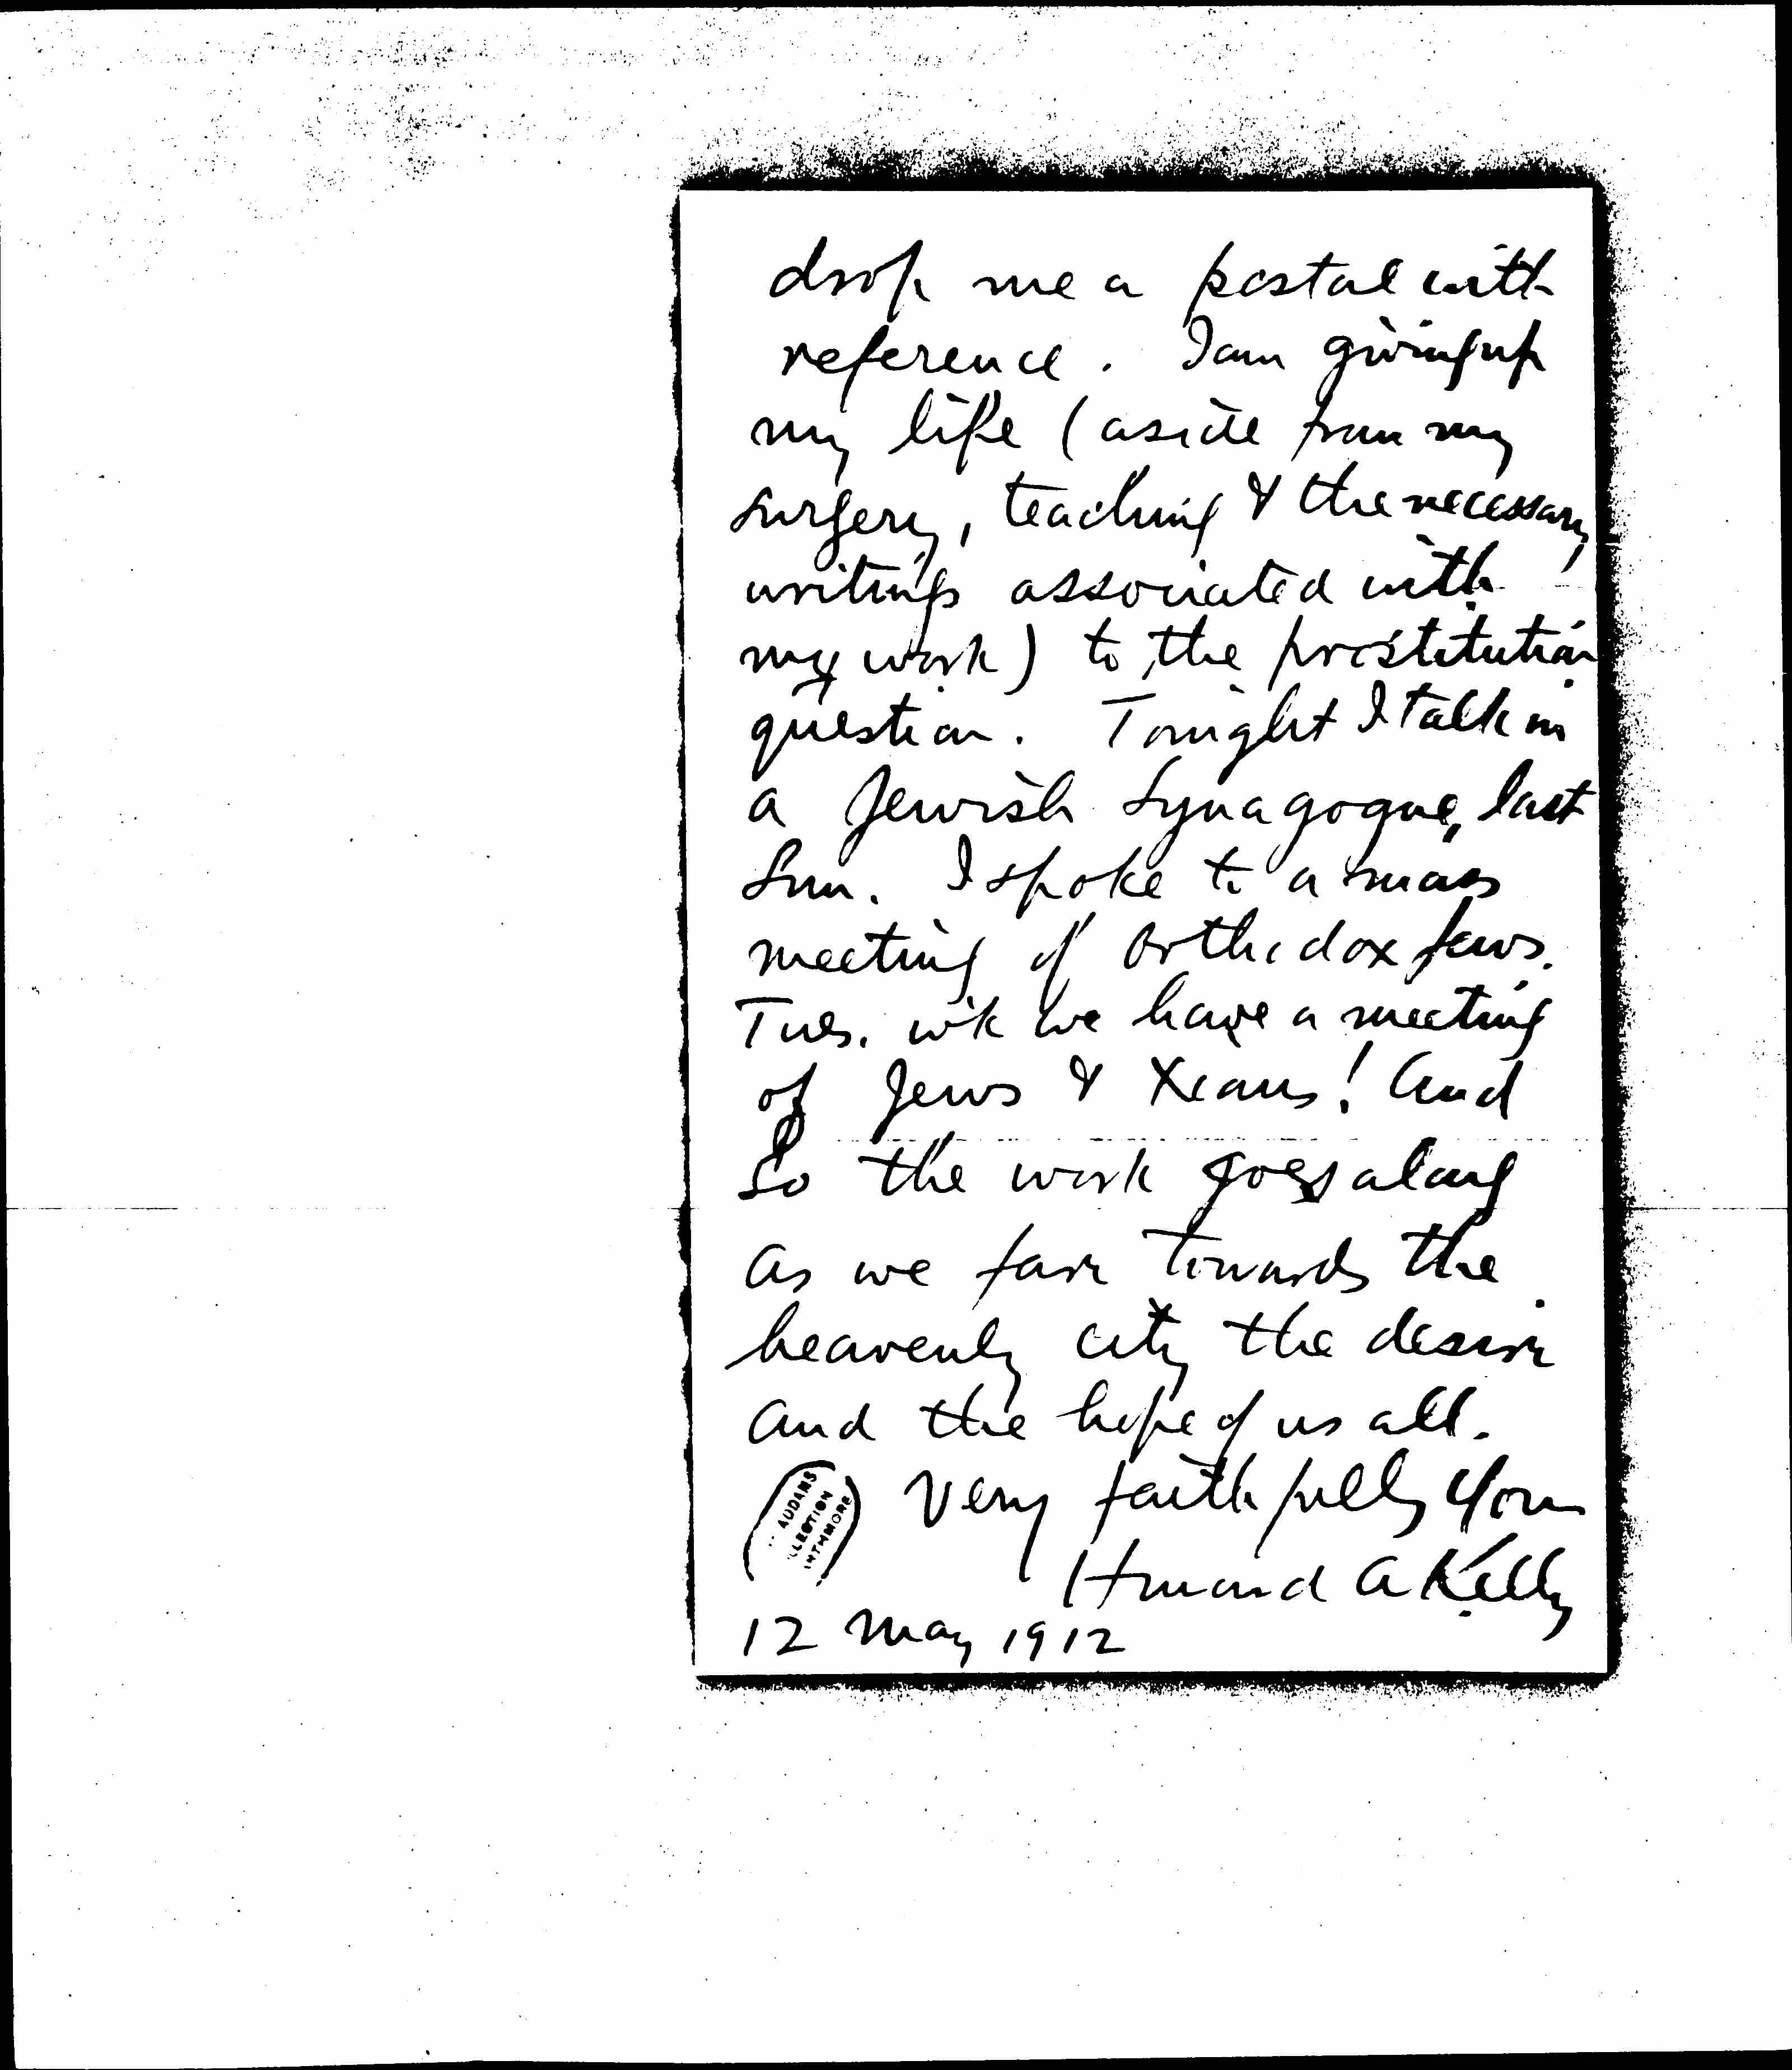 drop me a postal with
reference. I am giving up
my life (aside from my
surgery, teaching & the necessary
writings associated with
my work) to the prostitution
question. Tonight I talk in
a Jewish Synagogue, last
Sun. I spoke to a mass
meeting of Orthodox Jews.
Tues. wk we have a meeting
of Jews & Xians! And
so the work goes along
as we fare towards the
heavenly city the desire
and the hope of us all.
Very faithfully yours
Howard A Kelly
12 May 1912